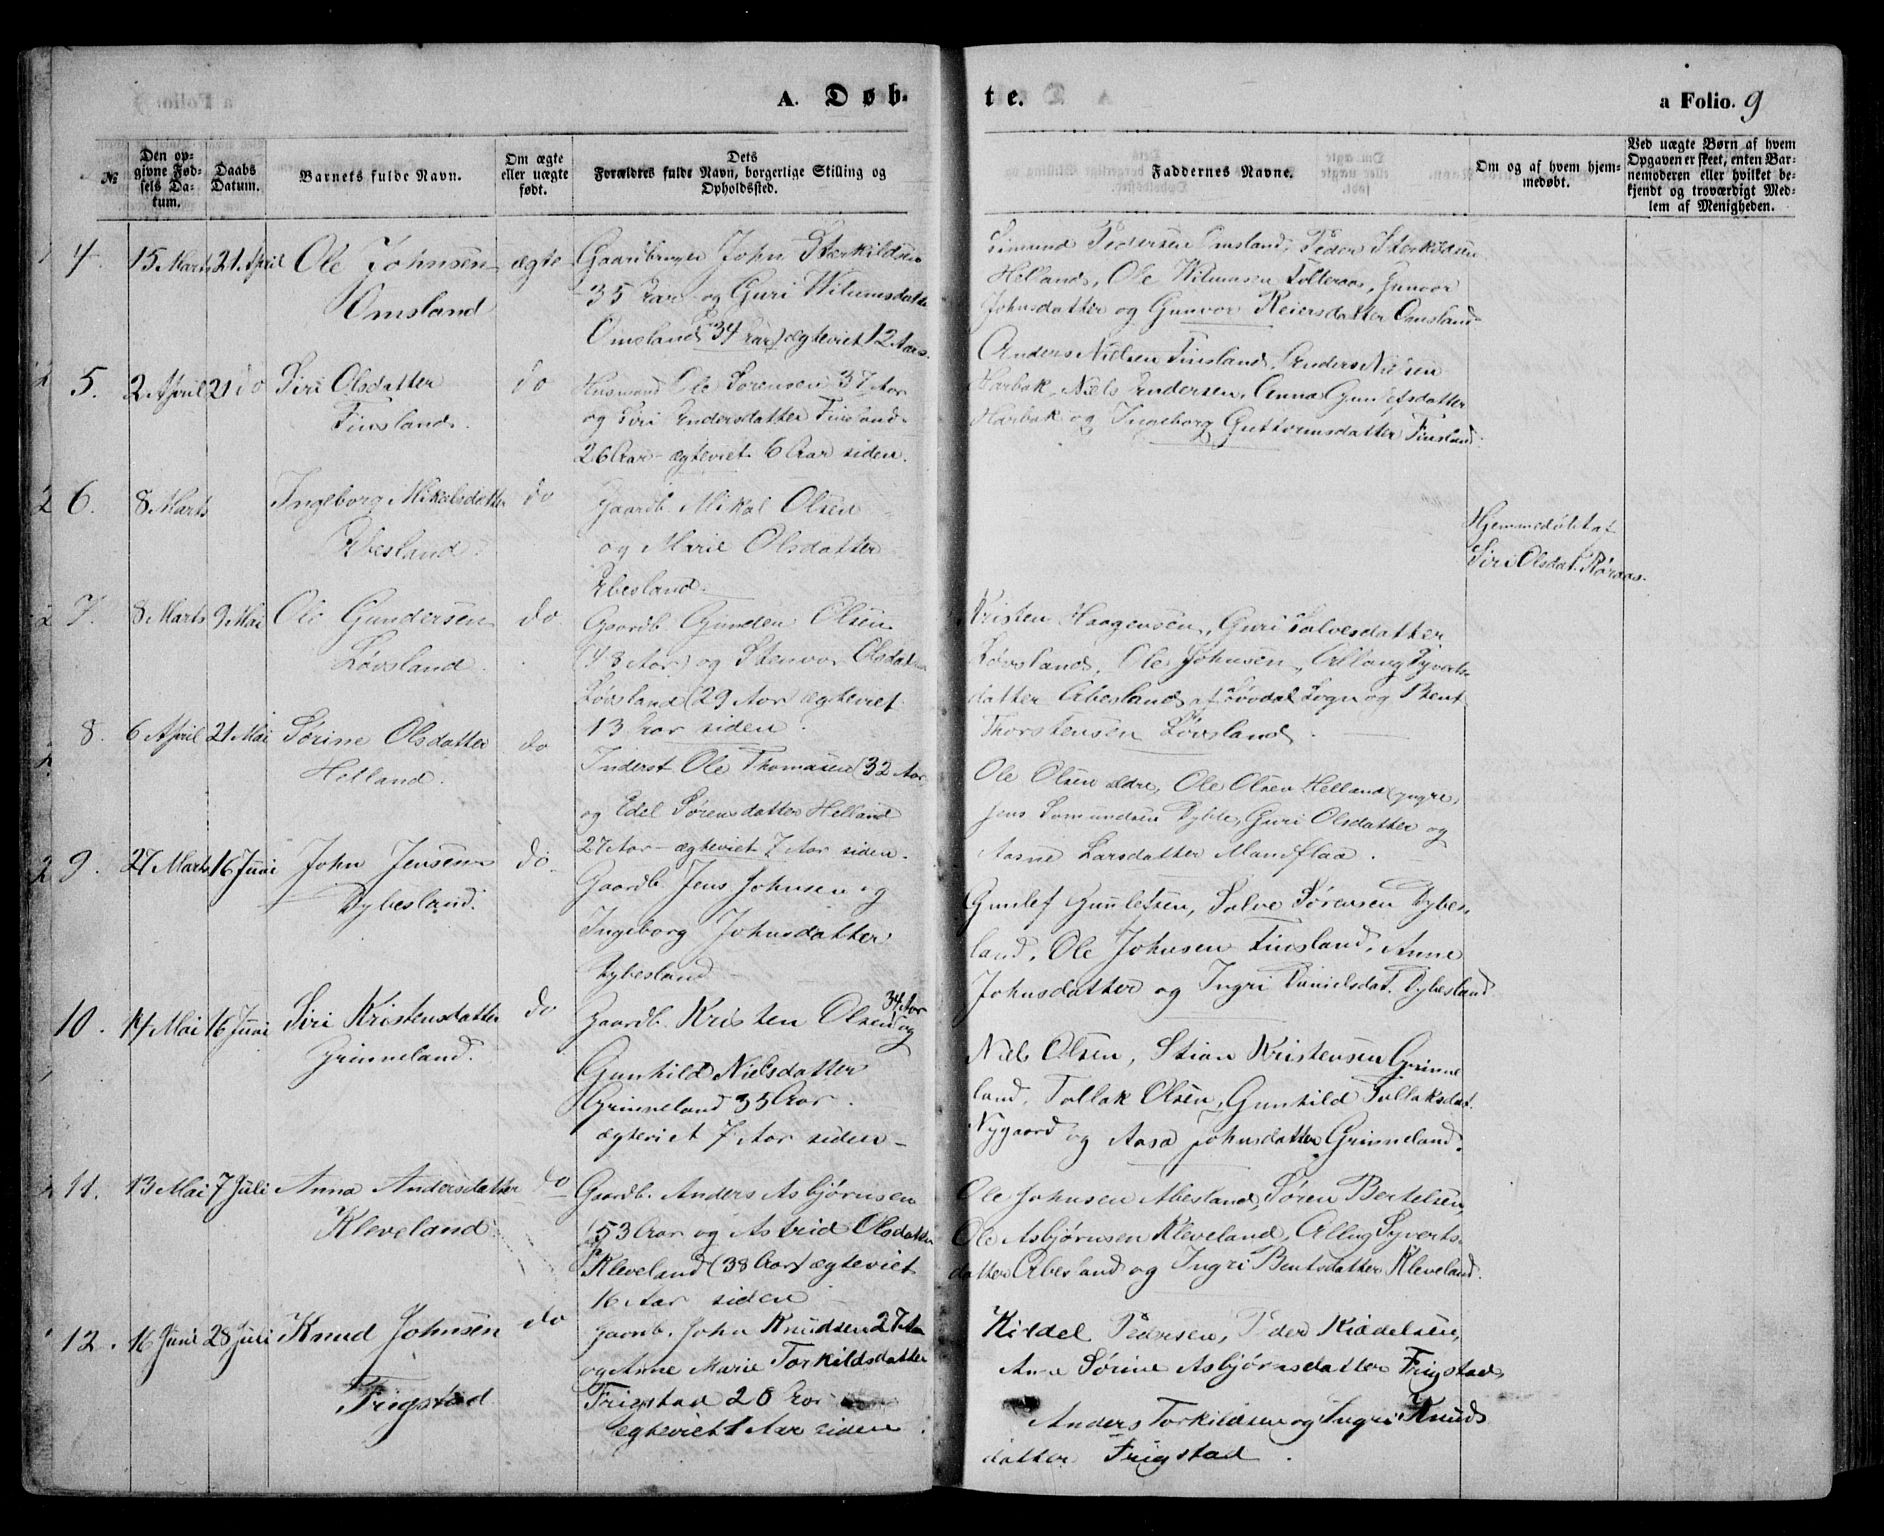 A. Døb-
te.
a Folio. 9
№
Den op-
givne Fød-
sels Da-
tum.
Daabs
Datum.
Barnets fulde Navn.
Om ægte
eller uægte
født.
Dets
Forældres fulde Navn, borgerlige Stilling og
Opholdssted.
Faddernes Navne.
Om og af hvem hjem-
medøbt.
Ved uægte Børn af hvem
Opgaven er skeet, enten Bar-
nemoderen eller hvilket be-
kjendt og troværdigt Med-
lem af Menigheden.
4. 15 Marts 21 April Ole Johnsen ægte
Omsland
Gaardbruger John Sterkildsen
35 Aar og Guri Wilumsdatter
Omsland (34 Aar) ægteviet 12 Aar
Simund Pedersen Omsland, Peder Sterkildsen
Helland, Ole Wilumsen, Gunvor
Johnsdatter og Gunvor Reiersdatter Omsland
5. 2 April 21 do Siri Olsdatter do
Finsland.
Husmand Ole Sørensen 37 Aar
og Siri Andersdatter Finsland
26 Aar - ægteviet 6 Aar siden.
Anders Nielsen Finsland, Anders Nielsen
Harbak, Niels Andersen, Anna Gunlefsdatter
Harbak og Ingeborg Guttormsdatter Finsland
6. 8 Marts Ingeborg Mikalsdatter do
Abesland.
Gaardb. Mikal Olsen
og Marie Olsdatter
Abesland.
Hjemmedøbt af
Siri Olsdat. Røraas.
7. 8 Marts 9 Mai Ole Gundersen do
Løvsland.
Gaardb. Gunder Olsen
(43 Aar) og Stenvor Olsdatter
Løvsland (29 Aar) ægteviet
13 Aar siden.
Kristen Haagensen, Guri Salvesdatter
Løvsland, Ole Johnsen, Allaug Syverts-
datter Abesland af Løvdal Sogn og Bent
Thorstensen Løvsland.
8. 6 April 21 Mai Sørine Olsdatter do
Helland.
Inderst Ole Thomasen (32 Aar)
og Edel Sørensdatter Helland
27 Aar - ægteviet 7 Aar siden.
Ole Olsen ældre, Ole Olsen Helland yngre,
Jens Somundsen, Guri Olsdatter og
Aasne Larsdatter Mandflaa.
9. 27 Marts 16 Juni John Jensen do.
Dybesland.
Gaardb. Jens Johnsen og
Ingeborg Johnsdatter
Dybesland
Gunlef Gunlefsen, Salve Sørensen Dybes-
land, Ole Johnsen Finsland, Anne
Johnsdatter og Ingri Danielsdat. Dybesland
10. 14 Mai 16 Juni Siri Kristensdatter do
Grinneland.
Gaardb. Kristen Olsen 34 Aar og
Gunhild Nielsdatter
Grinneland 35 Aar.
ægteviet 7 Aar siden -
Niels Olsen, Stian Kristensen Grinne
land, Tollak Olsen, Gunhild Tollaksdat.
Nygaard og Aasa Johnsdatter Grinneland.
11. 13 Mai 7 Juli Anna Andersdatter do
Kleveland.
Gaardb. Anders Asbjørnsen
53 Aar og Astrid Olsdatter
Kleveland (38 Aar) ægteviet
16 Aar siden
Ole Johnsen Abesland, Søren Bertelsen,
Ole Asbjørnsen Kleveland, Allaug Syverts-
datter Abesland og Ingri Bentsdatter Kleveland.
12. 16 Juni 28 Juli Knud Johnsen do
Frigstad
Gaardb. John Knudsen 27 Aar
og Anne Marie Torkildsdatter
Frigstad 20 Aar
ægteviet 1 Aar siden.
Kiddel Pedersen, Peder Kiddelsen,
Ane Sørine Asbjørnsdatter Frigstad,
Anders Torkildsen og Ingri Knuds
datter Frigstad.